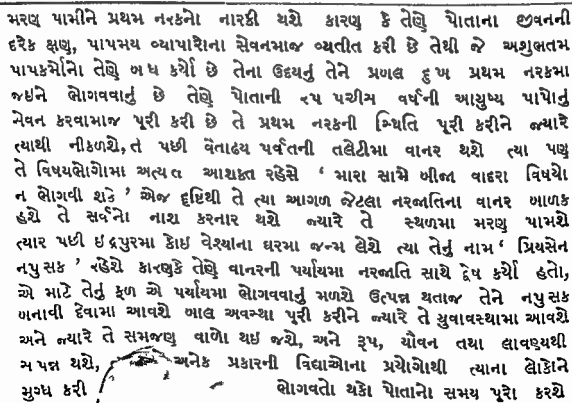 મરણ પામીને પ્રથમ નરકનો નારકી થશે કારણ કે તેણે પોતાના જીવનની
દરેક ક્ષણુ, પાપમય વ્યાપારોના સેવનમાજ વ્યતીત કરી છે તેથી જે અશુભતમ
પાપકર્મોનો તેણે બધ કર્યો છે તેના ઉદયનું તેને પ્રબલ દુખ પ્રથમ નરકમા
જઇને ભોગવવાનું છે તેણે પોતાની ૨૫ પચીસ વર્ષની આયુષ્ય પાપોનું
સેવન કરવામાજ પૂરી કરી છે તે પ્રથમ નરકની સ્થિતિ પૂરી કરીને જ્યારે
ત્યાથી નીકળશે, તે પછી વેતાઢય પર્વતની તલેટીમા વાનર થશે ત્યા પણ
તે વિષયભોગોમા અત્યત આશક્ત રહેસે ' મારા સામે બીજા વાદરા વિષયો
ન ભોગવી શકે ' એજ દૃષ્ટિથી તે ત્યા આગળ જેટલા નરજાતિના વાનર બાળક
હશે તે સર્વનો નાશ કરનાર થશે જ્યારે તે સ્થળમા મરણ પામશે
ત્યાર પછી ઇદ્રપુરમા કોઇ વેશ્યાના ઘરમા જન્મ લેશે ત્યા તેનું નામ ' પ્રિયસેન
નપુસક ' રહેશે કારણકે તેણે વાનરની પર્યાયમા નરજાતિ સાથે દ્વેષ કર્યો હતો,
એ માટે તેનું ફળ એ પર્યાયમા ભોગવવાનું મળશે ઉત્પન્ન થતાજ તેને નપુસક
બનાવી દેવામા આવશે બાલ અવસ્થા પૂરી કરીને જ્યારે તે યુવાવસ્થામા આવશે
અને જ્યારે તે સમજણ વાળો થઇ જશે, અને રૂપ, યૌવન તથા લાવણ્યથી
સપન્ન થશે, અનેક પ્રકારની વિદ્યાઓના પ્રયોગોથી ત્યાના લોકોને
મુગ્ધ કરી ભોગવતો થકો પોતાનો સમય પૂરો કરશે